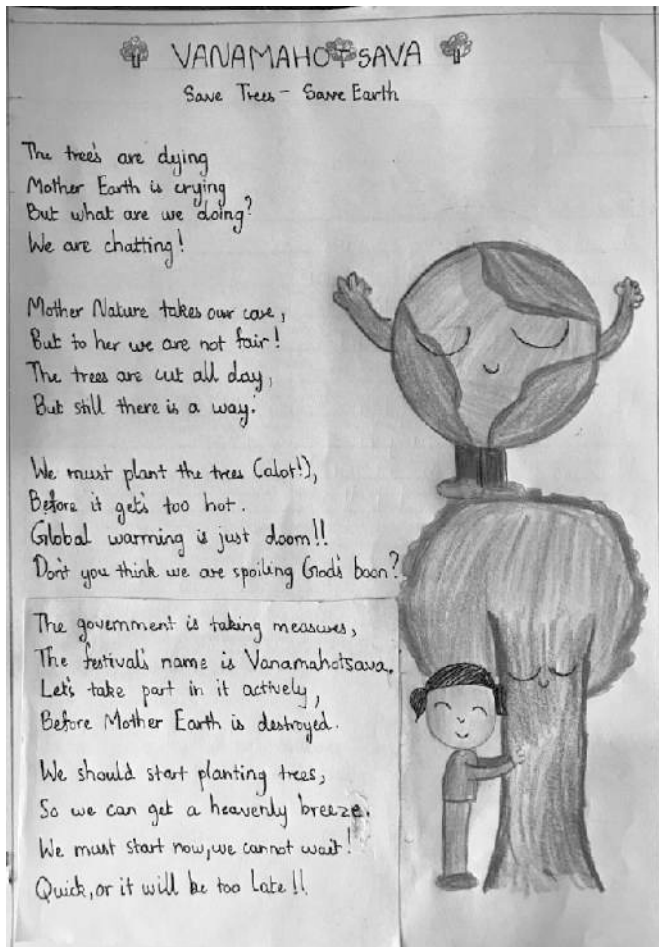 VANAMAHOTSAVA
Save Trees - Save Earth
The tree's are dying
Mother Earth is crying
But what are we doing?
We are chatting!
Mother Nature takes our care,
But to her we are not fair!
The trees are cut all day,
But still there is a way.
We must plant the trees (alot!),
Before it get's too hot.
Global warming is just doom!!
Don't you think we are spoiling God's boon?
The government is taking measures,
The festival's name is Vanamahotsava.
Let's take part in it actively,
Before Mother Earth is destroyed.
We should start planting trees,
So we can get a heavenly breeze.
We must start now, we cannot wait!
Quick, or it will be too late!!